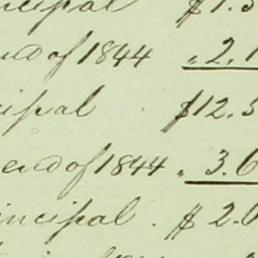 cipal $1.5
end of 1844 " 2.1
cipal $12.5
end of 1844 " 3.6
incipal . $2.6